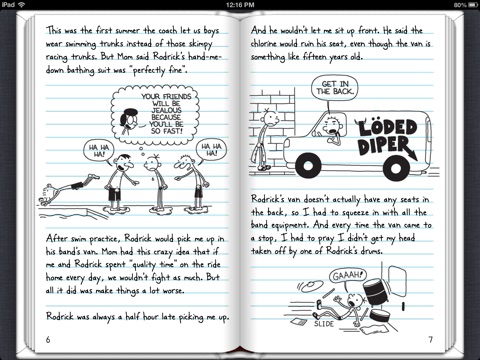 iPad
12:16 PM
80%
This was the first summer the coach let us boys
wear swimming trunks instead of those skimpy
racing trunks. But Mom said Rodrick's hand-me-
down bathing suit was "perfectly fine".
YOUR FRIENDS
WILL BE
JEALOUS
BECAUSE
YOU'LL BE
SO FAST!
HA HA
HA!
HA HA
HA!
After swim practice, Rodrick would pick me up in
his band's van. Mom had this crazy idea that if
me and Rodrick spent "quality time" on the ride
home every day, we wouldn't fight as much. But
all it did was make things a lot worse.
Rodrick was always a half hour late picking me up.
6
And he wouldn't let me sit up front. He said the
chlorine would ruin his seat, even though the van is
something like fifteen years old.
GET IN
THE BACK.
LÖDED
DIPER
Rodrick's van doesn't actually have any seats in
the back, so I had to squeeze in with all the
band equipment. And every time the van came to
a stop, I had to pray I didn't get my head
taken off by one of Rodrick's drums.
GAAAH!
SLIDE
7